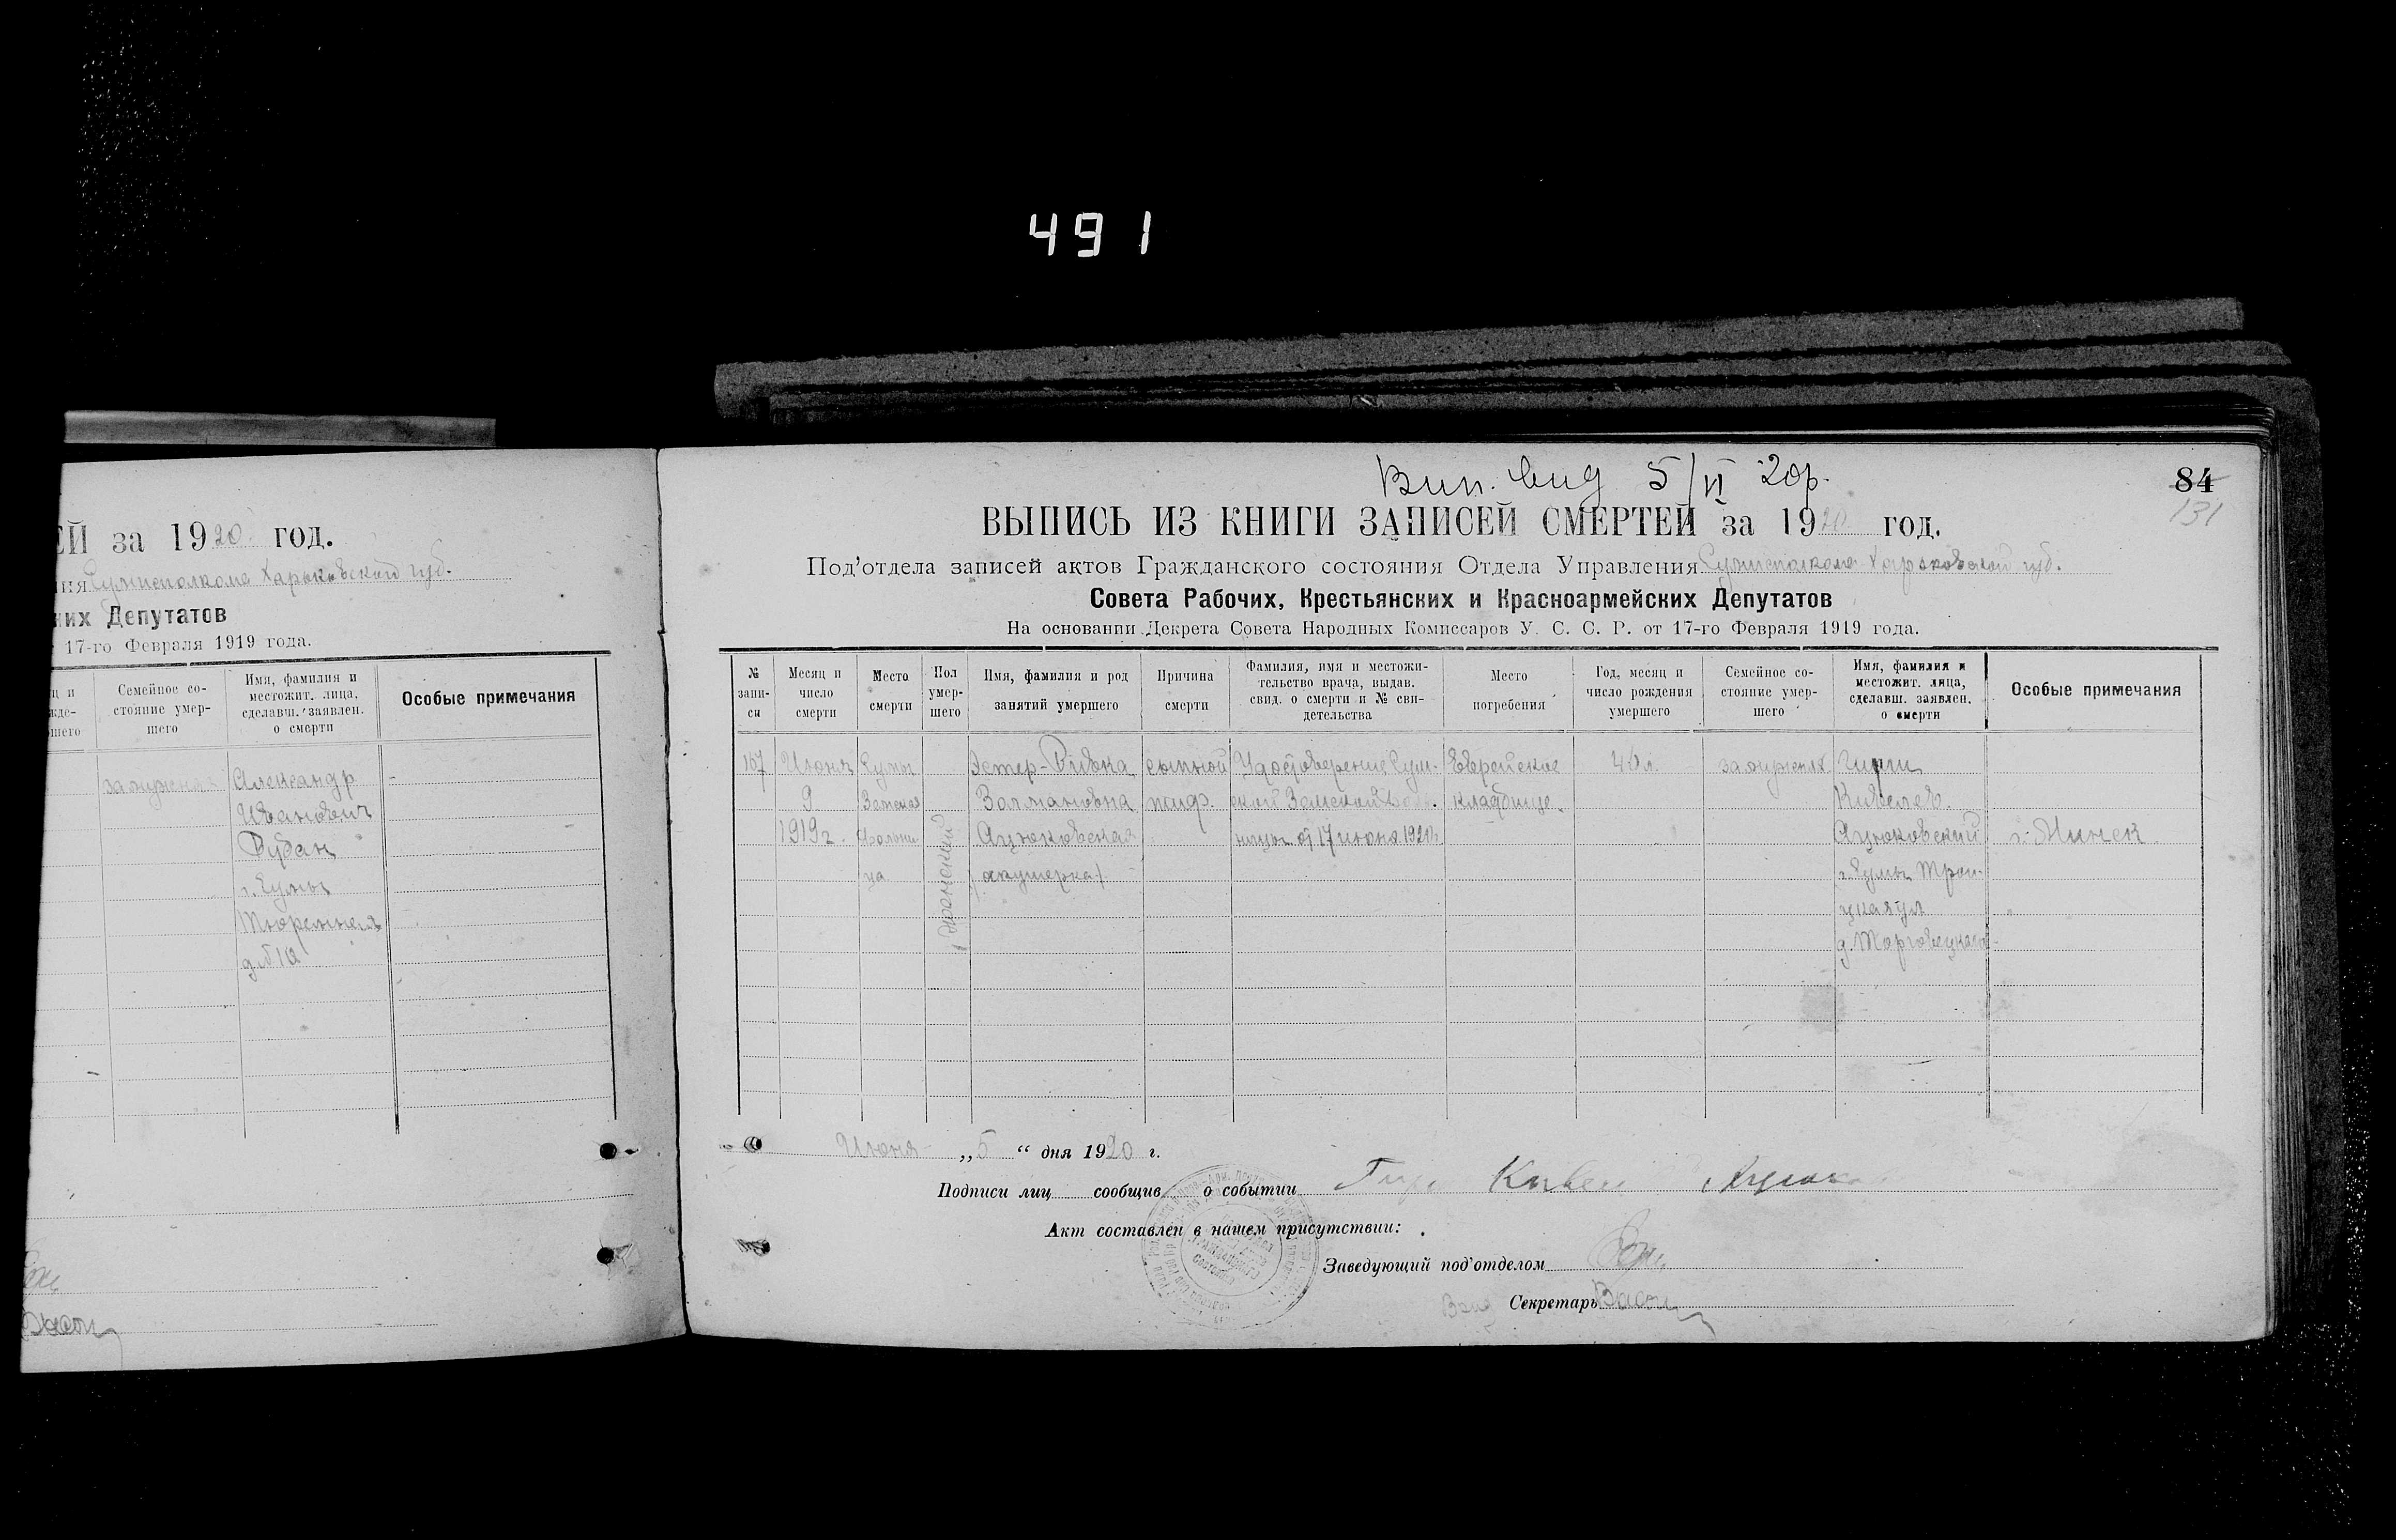 491
ЕЙ за 1920 год.
ния Сумисполкома Харьковской губ.
ких Депутатов
17-го Февраля 1919 года.
Семейное со-
стояние умер-
шего
Имя, фамилия и
местожит. лица,
сделавш. заявлен.
о смерти
Особые примечания
замужняя
Александр
Иванович
Рубан
г. Сумы
Тюремная
д. № 10
84
131
Вип. вид 5/VI 20р.
ВЫПИСЬ ИЗ КНИГИ ЗАПИСЕЙ СМЕРТЕЙ за 1920 год.
Под'отдела записей актов Гражданского состояния Отдела Управления Сумисполкома Харьковской губ.
Совета Рабочих, Крестьянских и Красноармейских Депутатов
На основании Декрета Совета Народных Комиссаров У. С. С. Р. от 17-го Февраля 1919 года.
№
запи-
си
Месяц и
число
смерти
Место
смерти
Пол
умер-
шего
Имя, фамилия и род
занятий умершего
Причина
смерти
Фамилия, имя и местожи-
тельство врача, выдав.
свид. о смерти и № сви-
детельства
Место
погребения
Год, месяц и
число рождения
умершего
Семейное со-
стояние умер-
шего
Имя, фамилия и
местожит. лица,
сделавш. заявлен.
о смерти
Особые примечания
167
Июня
9
1919 г.
Сумы
Земская
больни
ца
женский
Эстер-Ривка
Залмановна
Ацюковская
(акушерка)
сыпной
тиф.
Удостоверение Сум-
ской Земской Боль.
ницы от 17 июня 1920г.
Еврейское
кладбище.
замужняя
Гирш
Кивелев.
Ацюковский
г. Сумы Трои-
цкая ул
д. Торговецкого
г. Минск
Июня „5“ дня 1920 г.
Подписи лиц сообщив о событии
Акт составлен в нашем присутствии:
Заведующий под'отделом
Секретарь